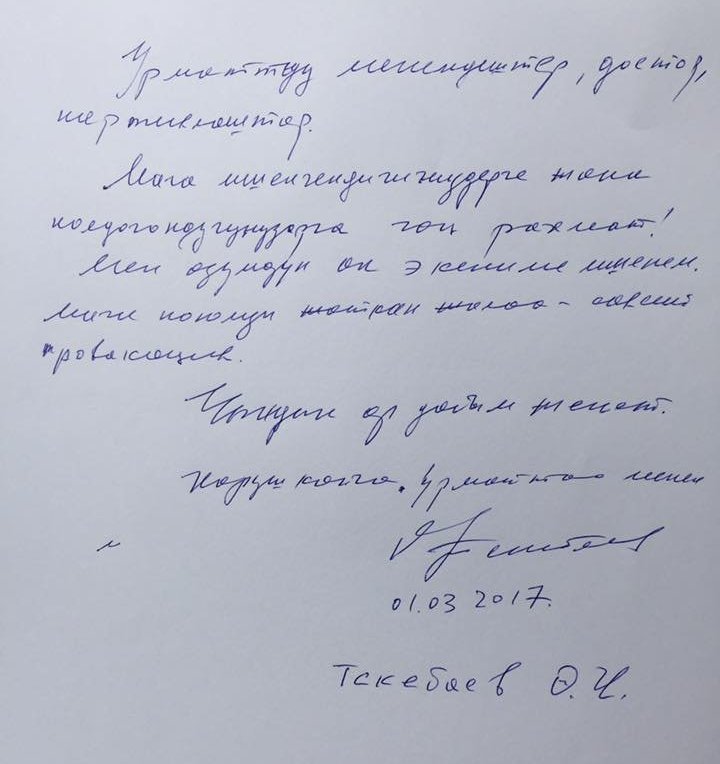 Урматтуу мекендештер, достор,
партиялаштар.
Мага ишенгендигиниздерге жана
колдогондугунуздарга чоң рахмат!
Мен өзүмдүн ак экениме ишенем.
Мага коюлуп жаткан жалаа - саясий
провакация.
Чындык ар дайым жеңет.
Көрүшкөнчө. Урматтоо менен
01.03 2017.
Текебаев Ө.Ч.